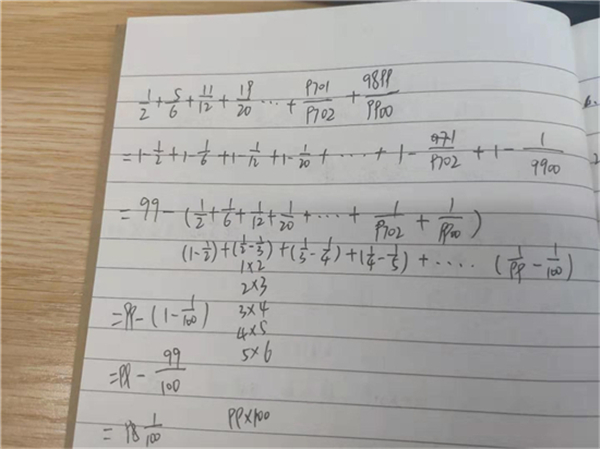 1/2 + 5/6 + 11/12 + 19/20 ... + 9701/9702 + 9899/9900
= 1 - 1/2 + 1 - 1/6 + 1 - 1/12 + 1 - 1/20 + ... + 1 - /9702 + 1 - 1/9900
= 99 - (1/2 + 1/6 + 1/12 + 1/20 + ... + 1/9702 + 1/9900)
(1 - 1/2) + (1/2 - 1/3) + (1/3 - 1/4) + (1/4 - 1/5) + .... (1/99 - 1/100)
1×2
2×3
= 99 - (1 - 1/100) 3×4
4×5
= 99 - 99/100 5×6
= 98 1/100 99×100
6.